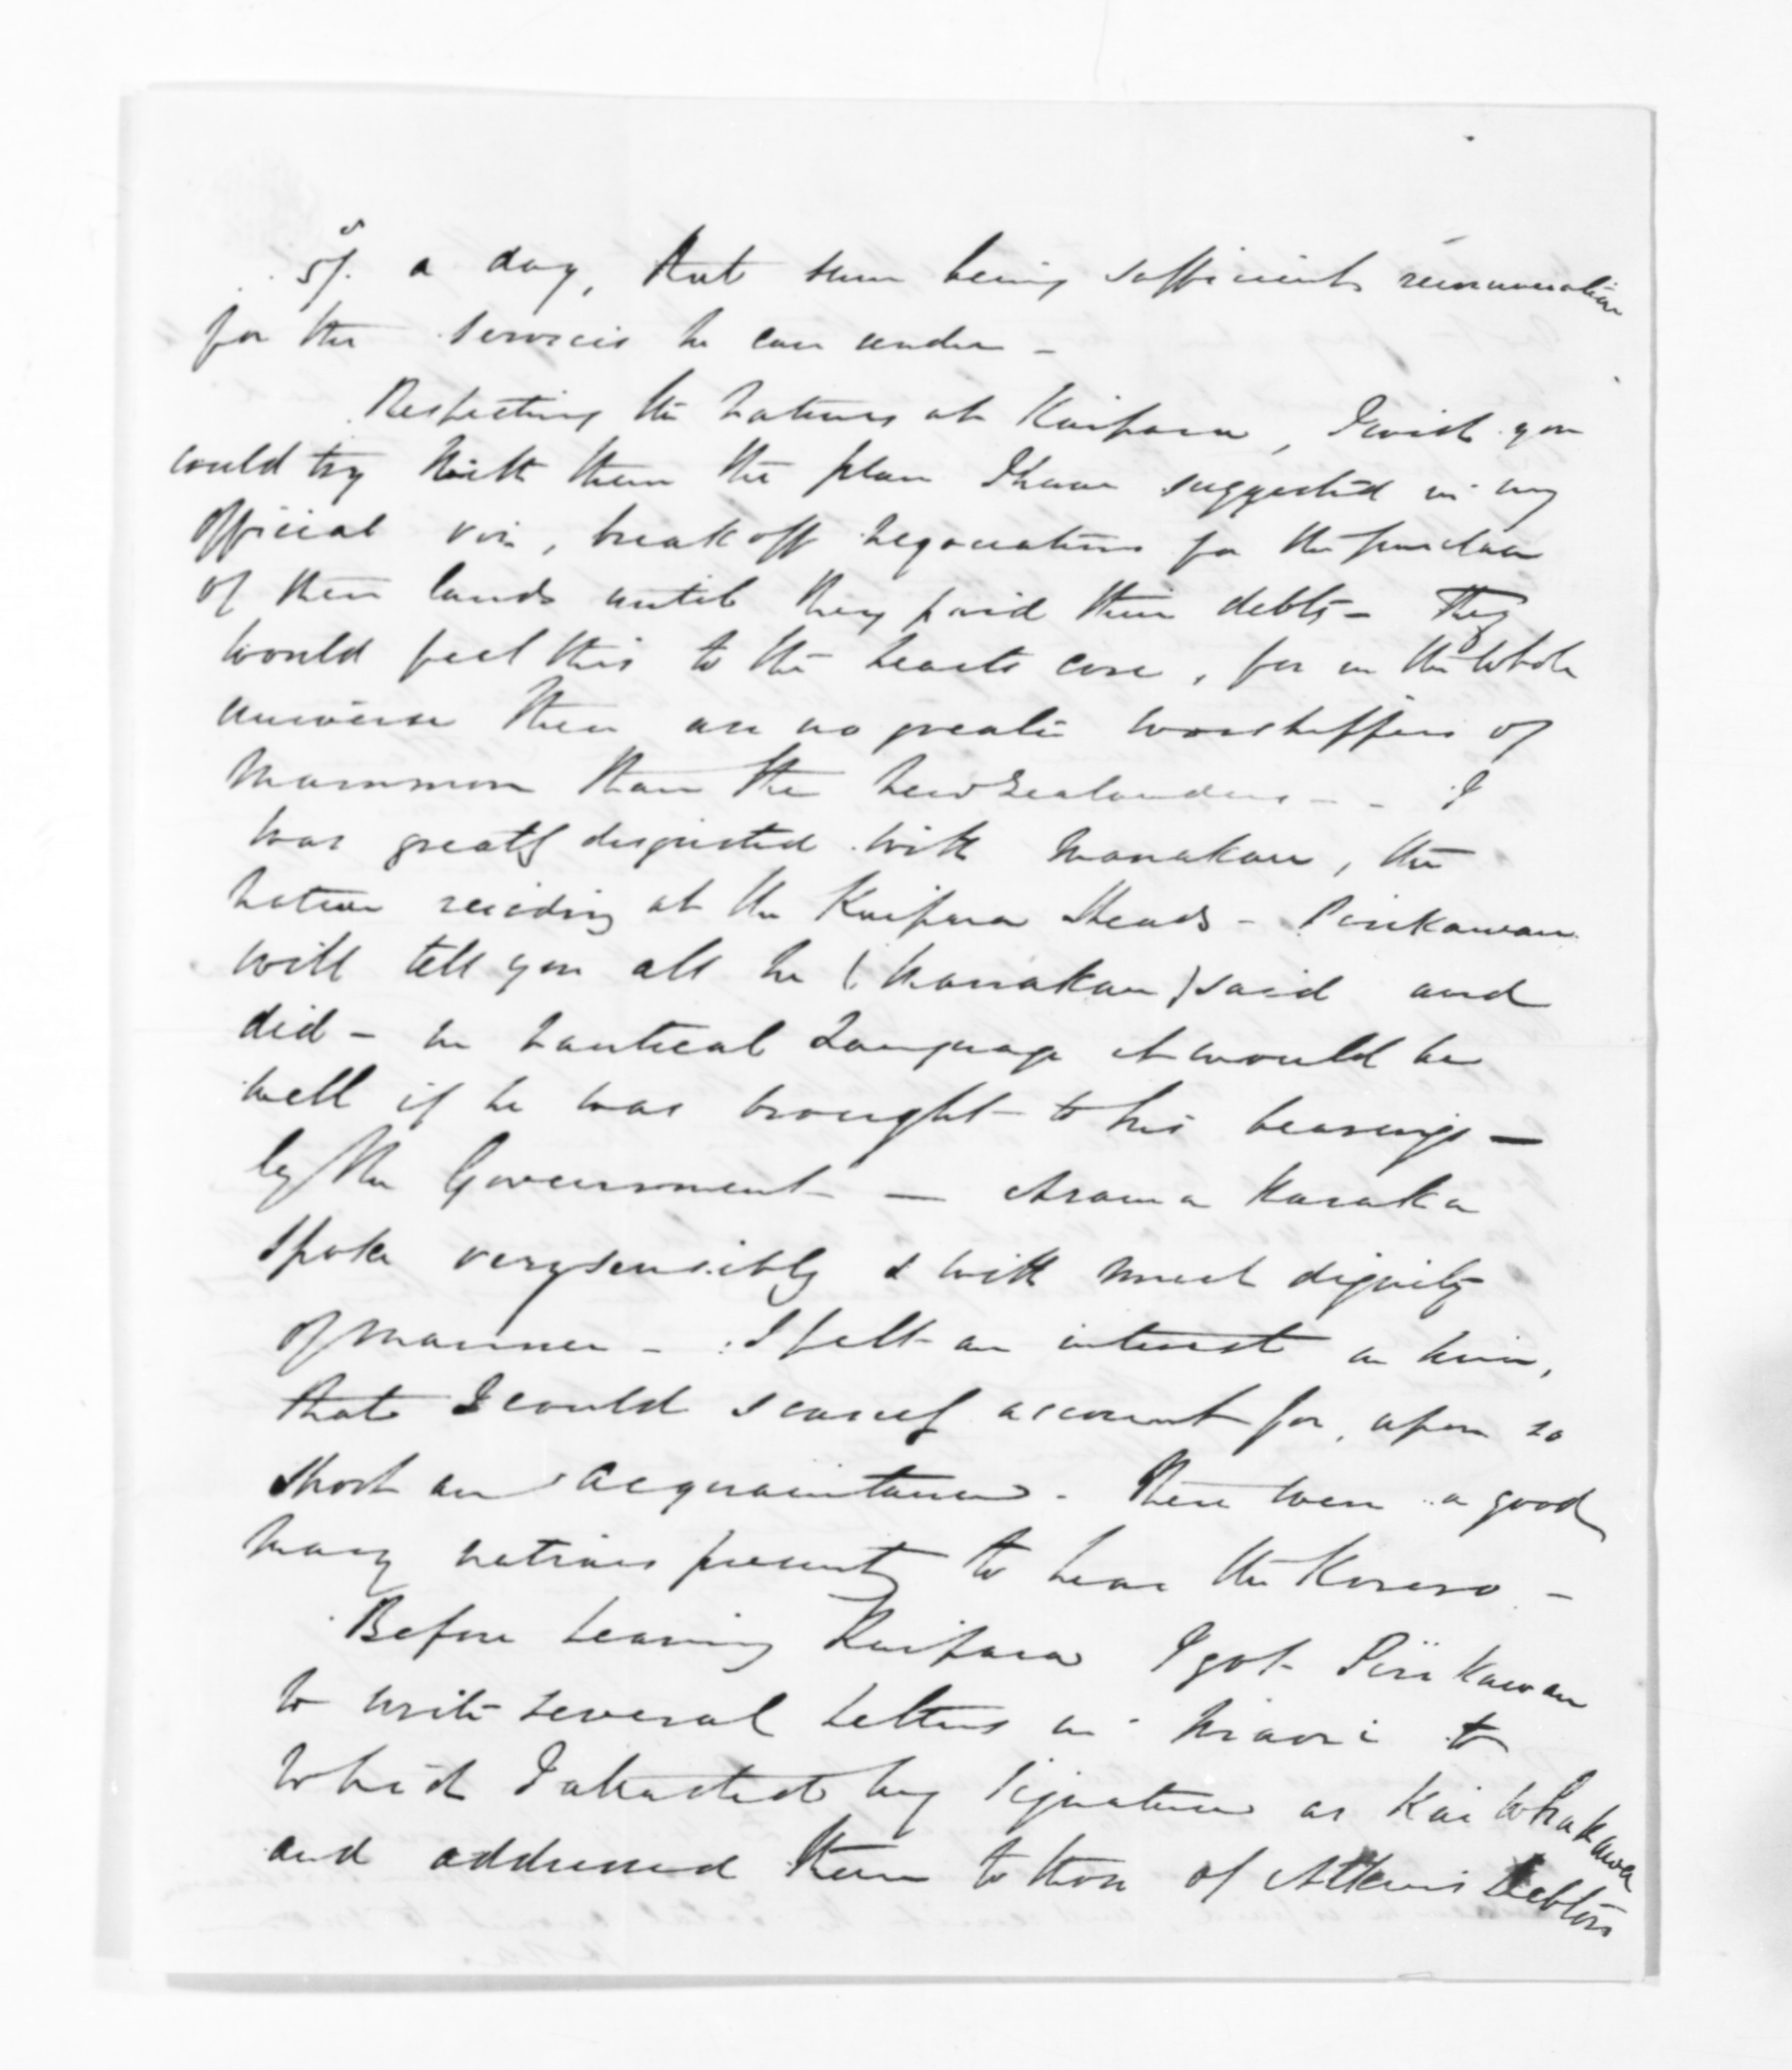 5/. a day, that sum being sufficient remuneration
for the services he can render -
Respecting the Natives at Kaipara, I wish you
could try with them the plan I have suggested in my
official viz, break off negociations for the purchase
of their lands until they paid their debts - They
would feel this to the hearts core, for in the whole
universe there are no greater worshippers of
Mammon than the New Zealanders - - I
was greatly disgusted with Manakau, the
Native residing at the Kaipara Heads - Pirikawau
will tell you all he (Manakau) said and
did - in Nautical Language it would be
well if he was brought to his bearings -
by the Government - Arama Karaka
spoke very sensibly & with much dignity
of manner - I felt an interest in him,
that I could scarcely account for, upon so
short an acquaintance. There were a good
many natives present to hear the Korero -
Before leaving Kaipara I got Pirikawau
to write several letters in Maori to
which I attached my signature as Kai Whakawa
and addressed them to those of Atkins Debtors